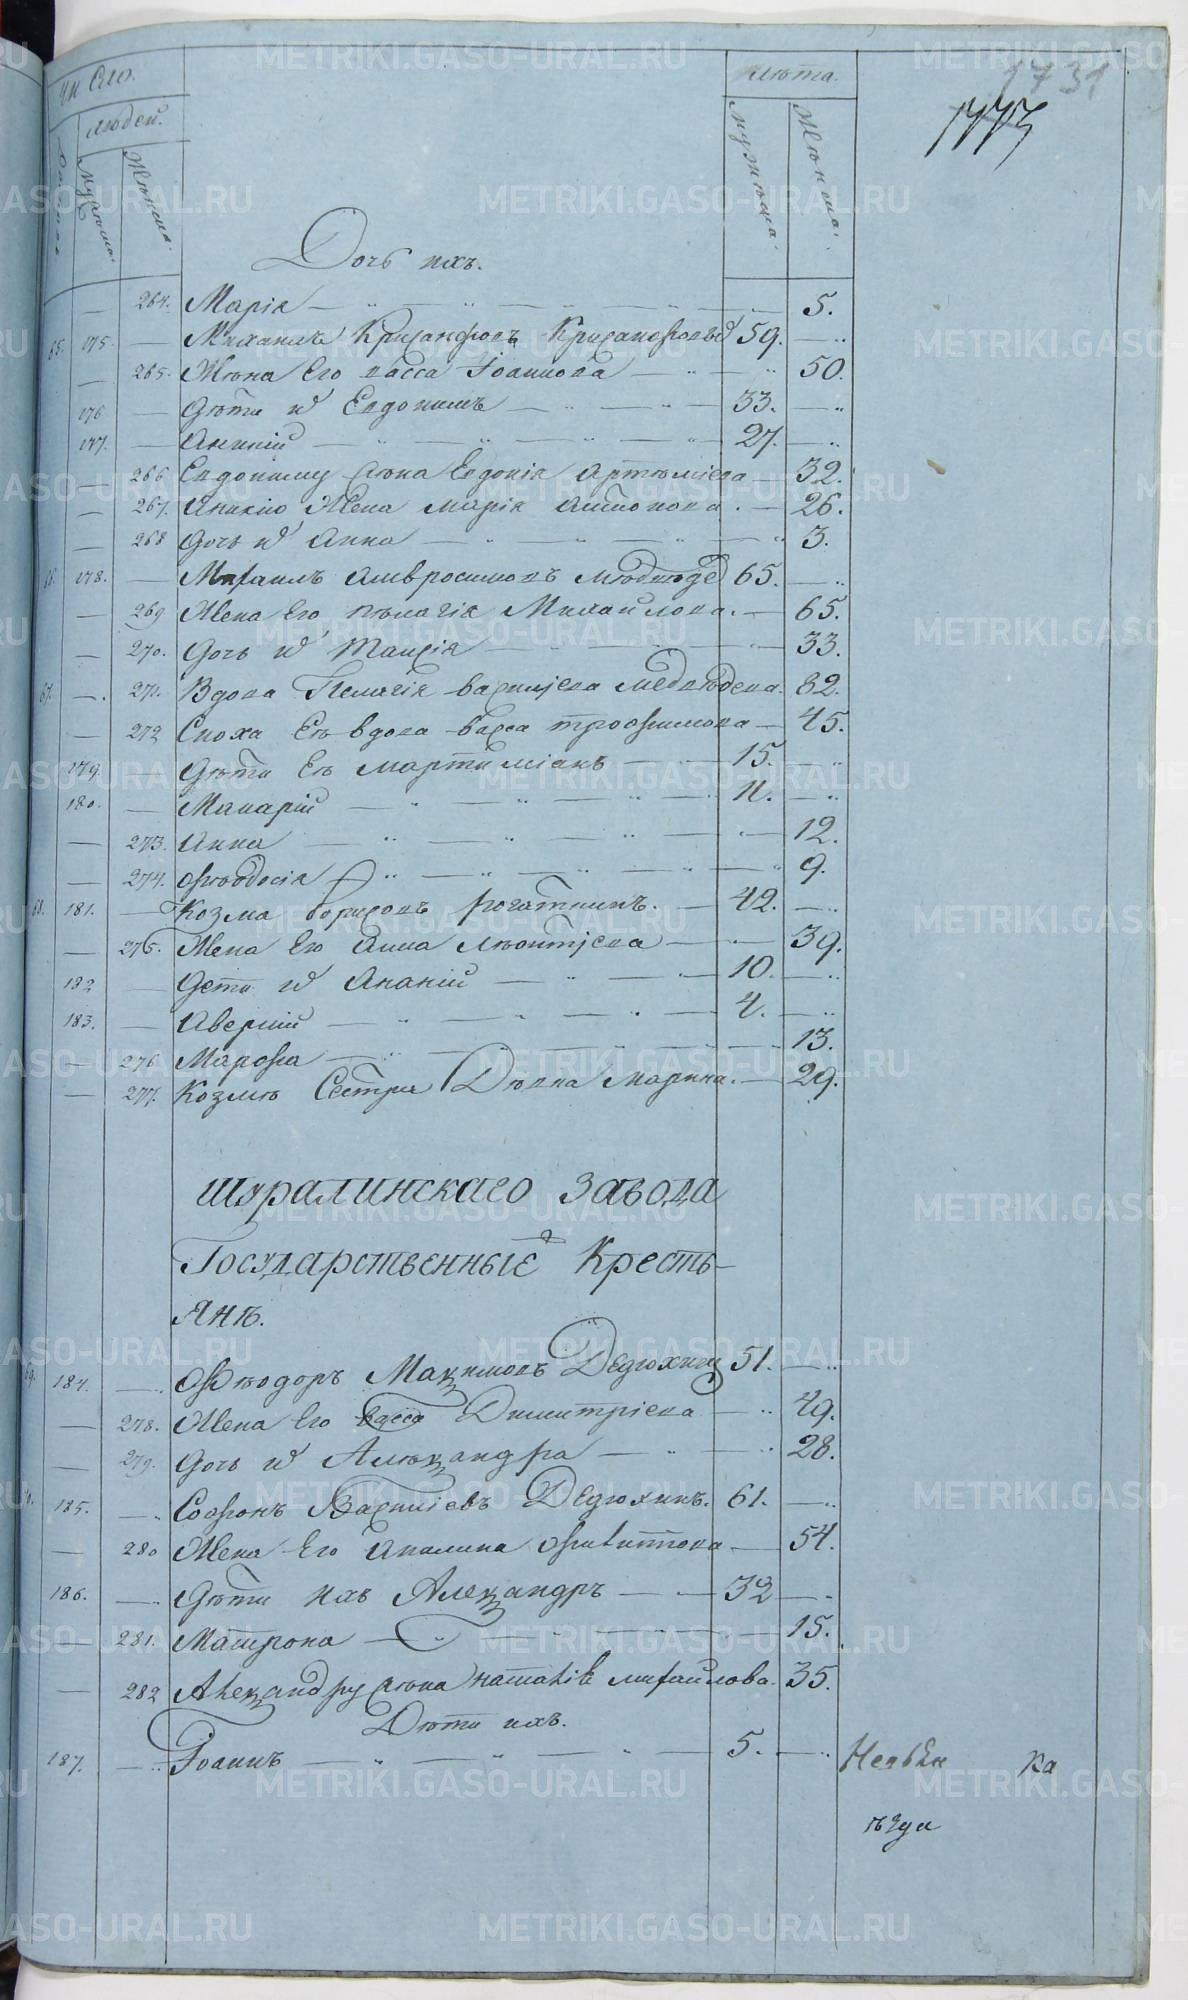 Число.
Людей.
Лѣта.
1731
1773
Мужеска.
Женска.
Мужеска.
Женска.
Дочь ихъ.
264. Марія 5.
85. 175. Михаилъ Крисанфовъ Крисанфовъ 59.
265. Жена Его Васса Іоаннова 50.
176 Дѣти их Евдокимъ 33.
177. Ананій 27.
266 Евдокиму жена Евдокія Артемьева 32.
267. Ананію Жена Марія 26.
268 Дочь их Анна 3.
86. 178. Михаилъ Амвросимовъ 65.
269 Жена Его Пелагія Михайлова. 65.
270. Дочь их Таисія 33.
87. 271. Вдова Пелагія Василіева Медвѣдева. 82.
272 Сноха Ея вдова Васса Трофимова 45.
179. Дѣти Ея Мартиміанъ 15.
180. Макарій 11.
273. Анна 12.
274. Феодосія 9.
88. 181. Козма Борисовъ Рогаткинъ. 42.
275. Жена Его Анна Леонтіева 39.
182 Дети их Ананій 10.
183. Аверкій 4.
276 Марфа 13.
277. Козмѣ Сестра Дѣвка Марина. 29.
Шуралинскаго Завода
Государственные Кресть-
янъ.
89. 184. Феодоръ Максимовъ Дедюхинъ 51.
278. Жена Его Васса Димитріева 49.
279. Дочь их Александра 28.
90. 185. Софонъ Василіевъ Дедюхинъ. 61.
280 Жена Его Акилина 54.
186. Дѣти ихъ Александръ 32
281. Матрона 15.
282 Александру жена Наталія Михайлова. 35.
Дѣти ихъ.
187. Іоаннъ 5.
ка
METRIKI.GASO-URAL.RU